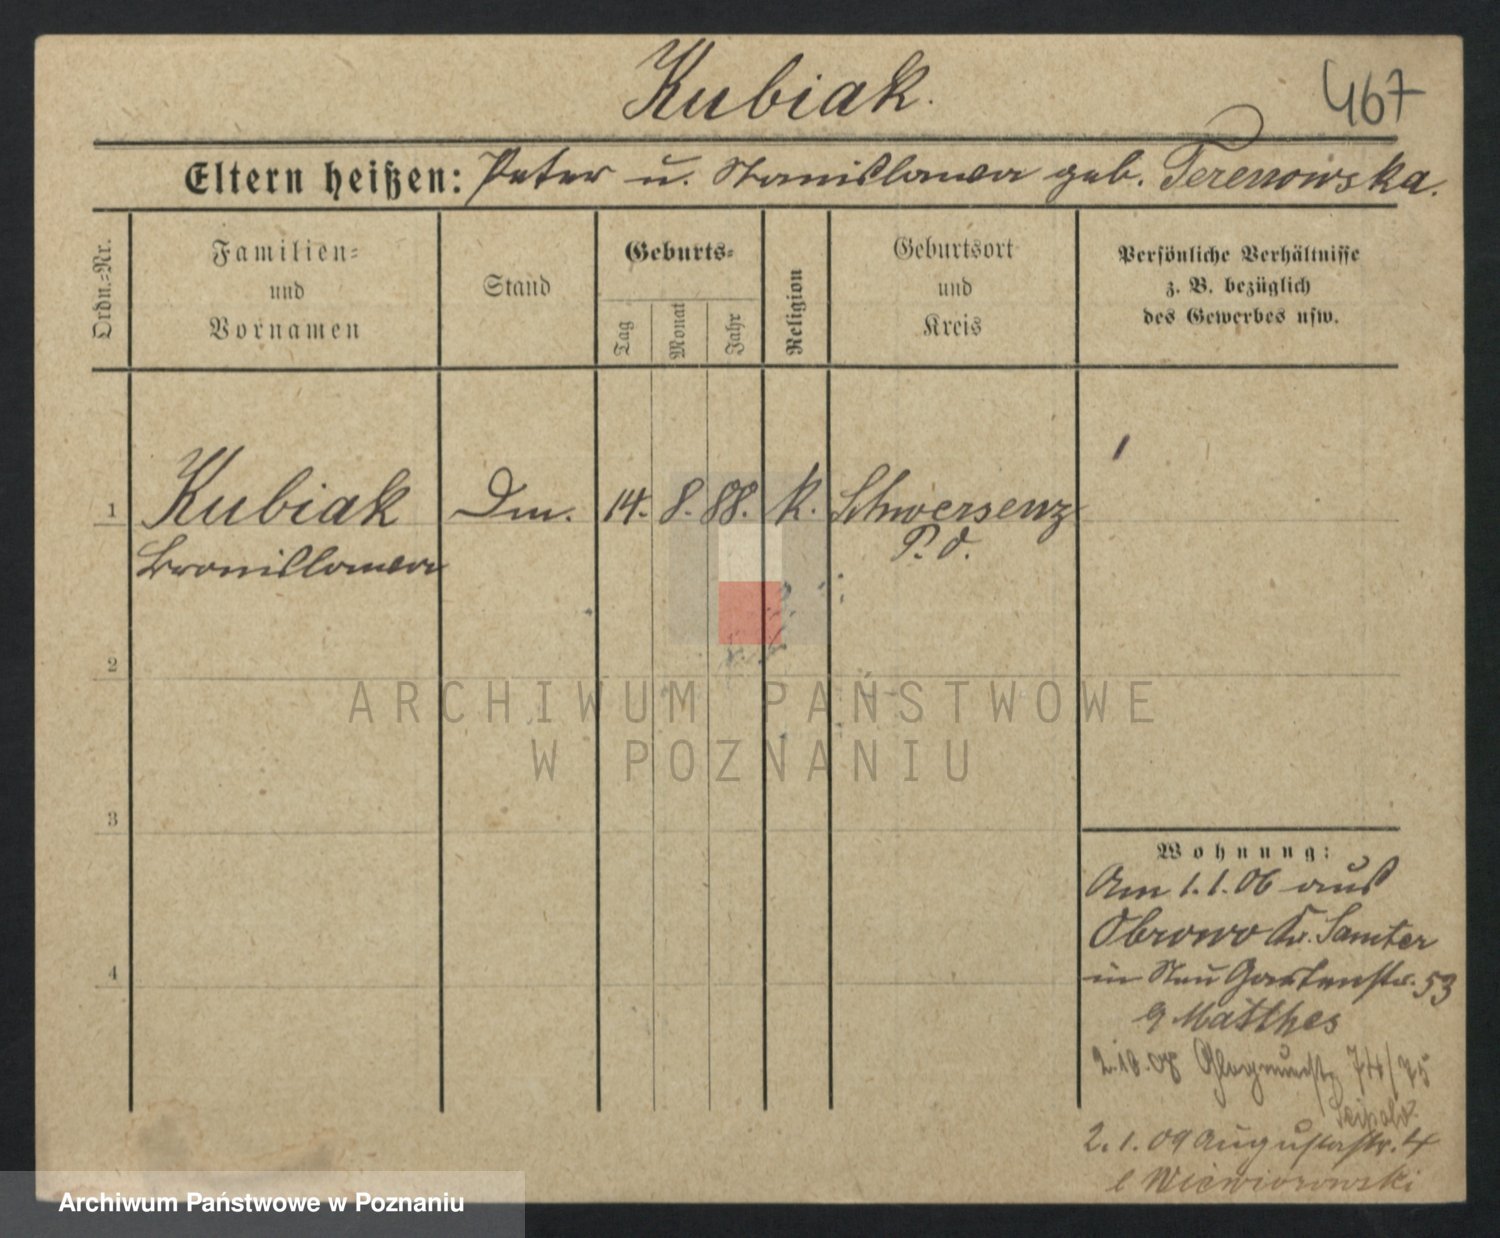 Kubiak.
467
Eltern heißen: Peter u. Stanislawa geb. Terenowska.
Ordn.-Nr.
Familien-
und
Vornamen
Stand
Geburts-
Tag
Monat
Jahr
Religion
Geburtsort
und
Kreis
Persönliche Verhältnisse
z. B. bezüglich
des Gewerbes usw.
1 Kubiak Dm. 14. 8. 88. k. Schwersenz
Bronislawa P. O.
2
3
4
Wohnung:
Am 1.1.06 aus
Obrowo Kr. Samter
in Neu Gartenstr. 53
Matthes
2.10.08 74/75
2.1.09 Augustastr. 4
Wiewiorowski
ARCHIWUM PAŃSTWOWE
W POZNANIU
Archiwum Państwowe w Poznaniu